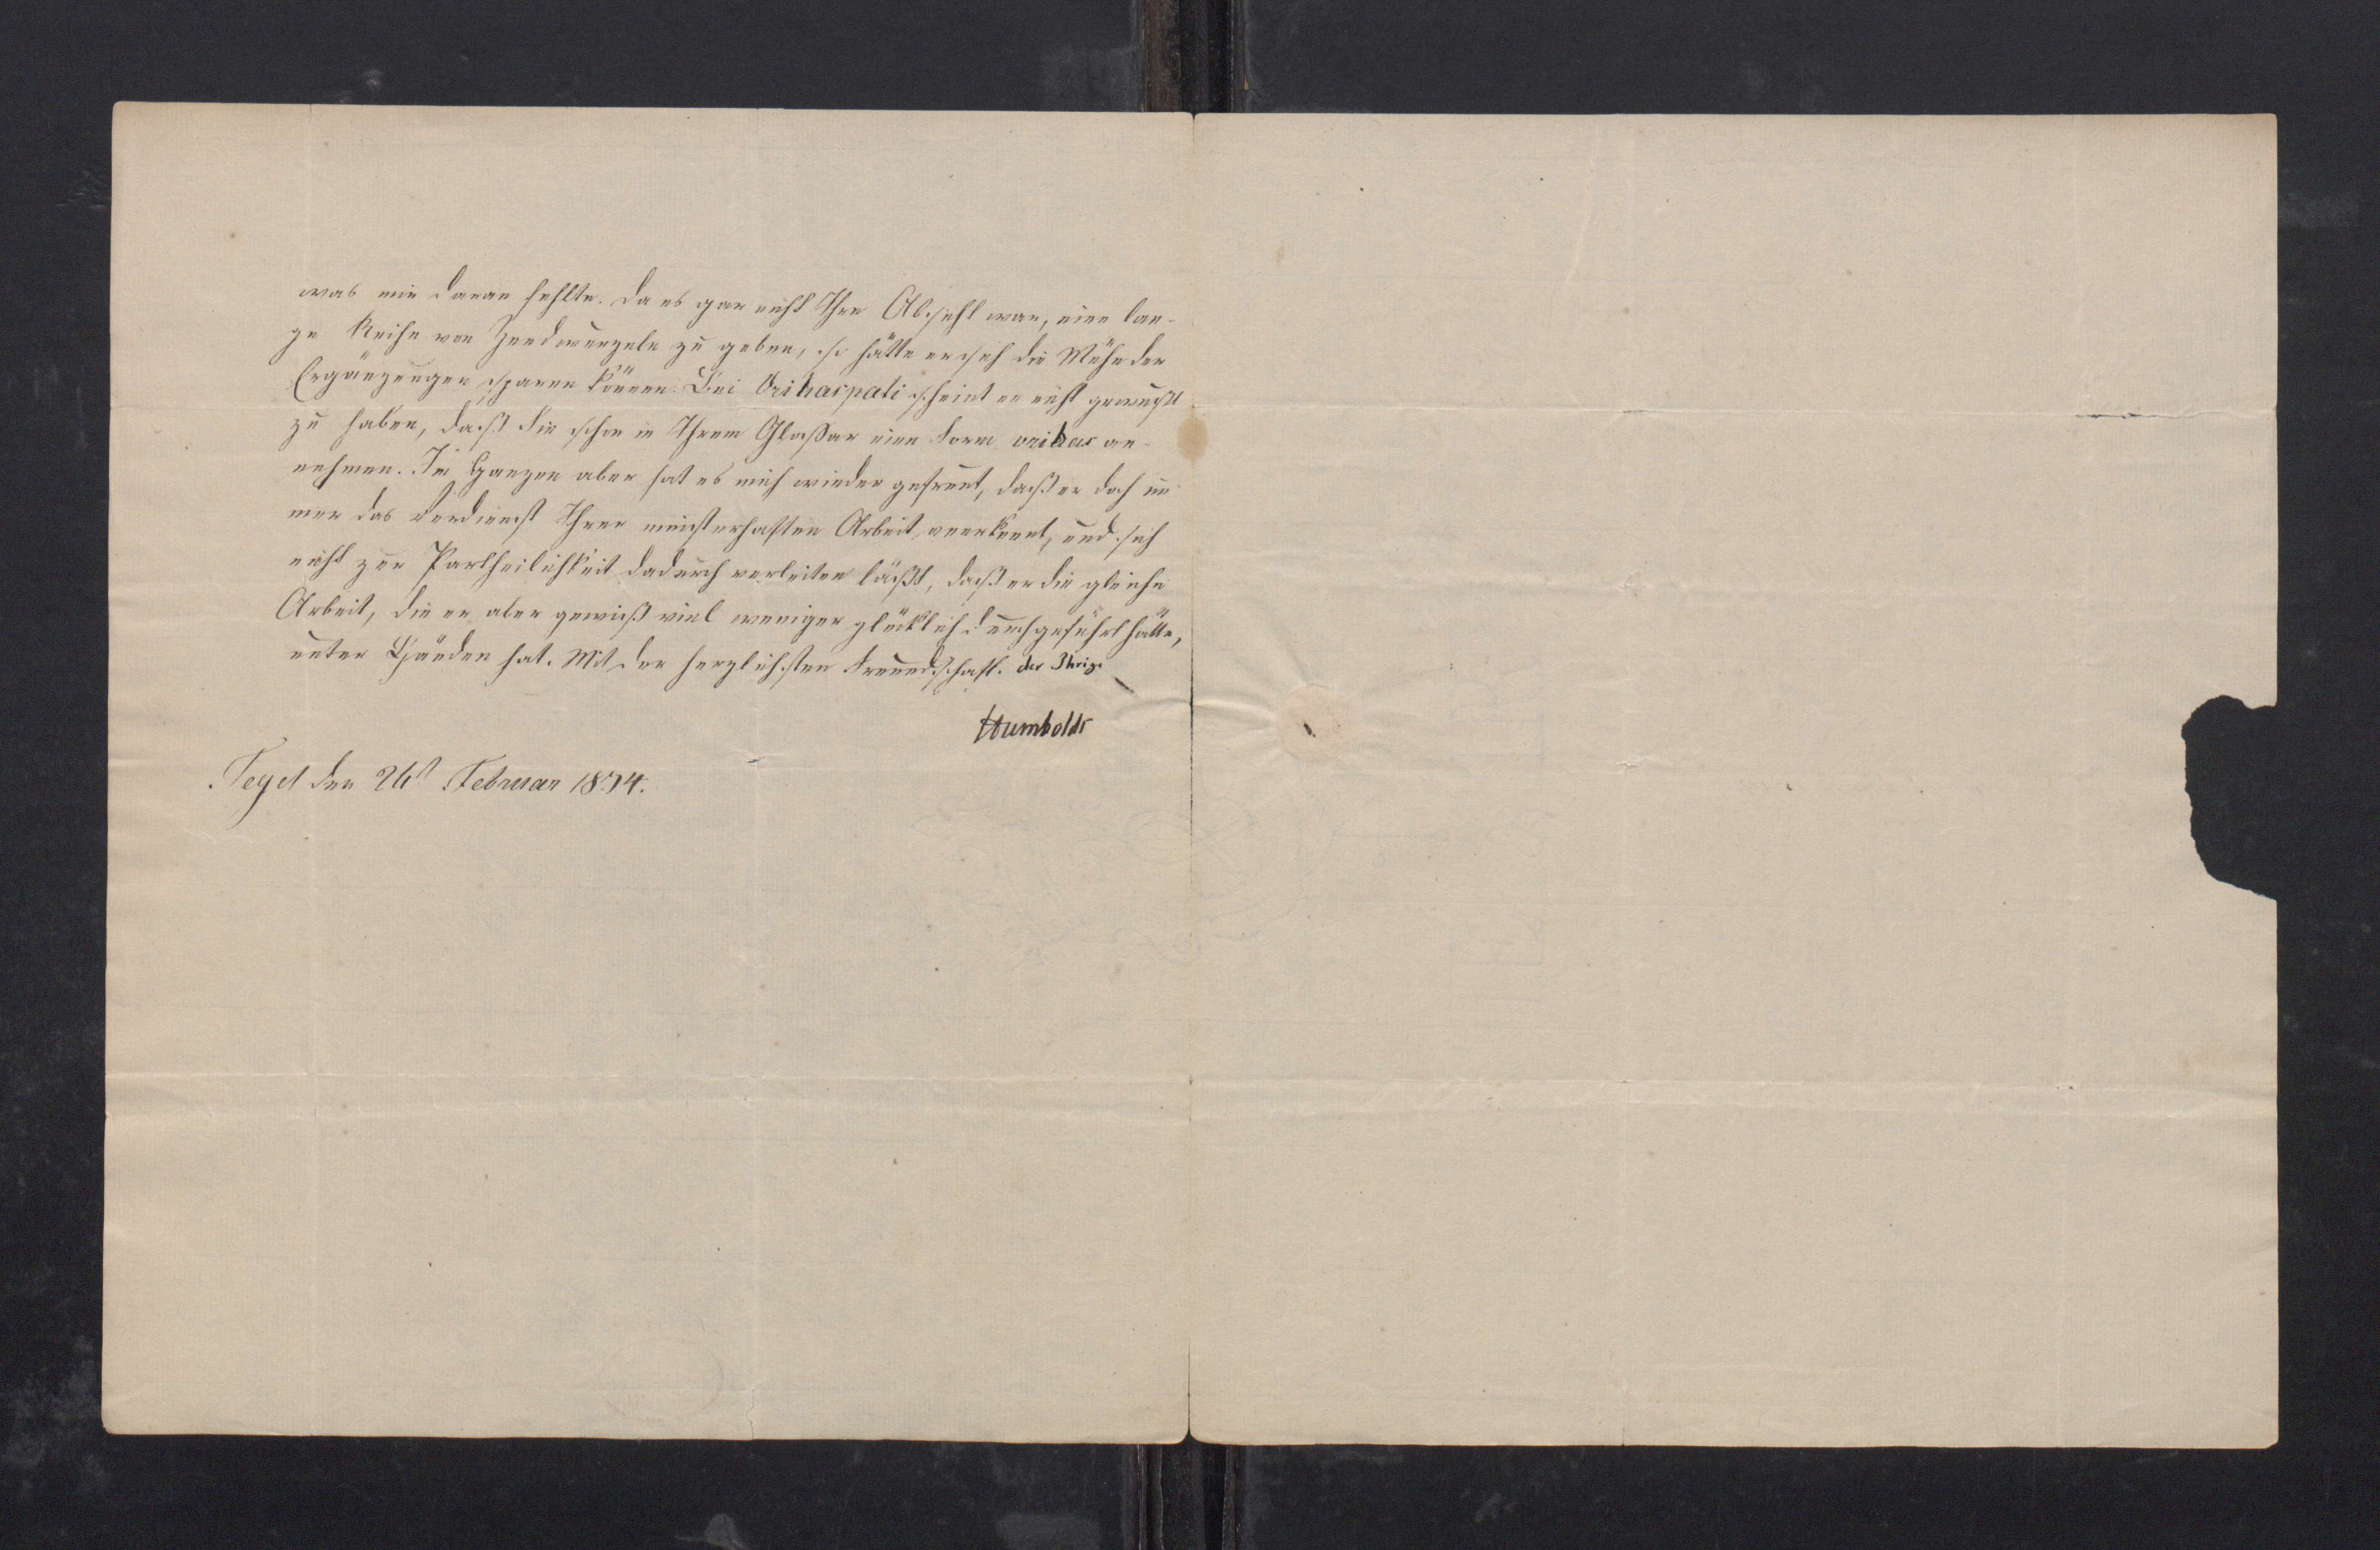 was mir daran fehlte. Da es gar nicht Ihre Absicht war, eine lan-
ge Reihe von Zendwurzeln zu geben, so hätte er sich die Mühe der
Ergänzungen sparen können. Bei Vrihaspati scheint er nicht gewußt
zu haben, daß Sie schon in Ihrem Glossar eine Form vrihas an-
nehmen. Im Ganzen aber hat es mich wieder gefreut, daß er doch im-
mer das Verdienst Ihrer meisterhaften Arbeit anerkennt, und sich
nicht zur Partheilichkeit dadurch verleiten läßt, daß er die gleiche
Arbeit, die er aber gewiß viel weniger glücklich durchgeführt hätte,
unter Händen hat. Mit der herzlichsten Freundschaft. der Ihrige
Humboldt
Tegel den 26t Februar 1834.